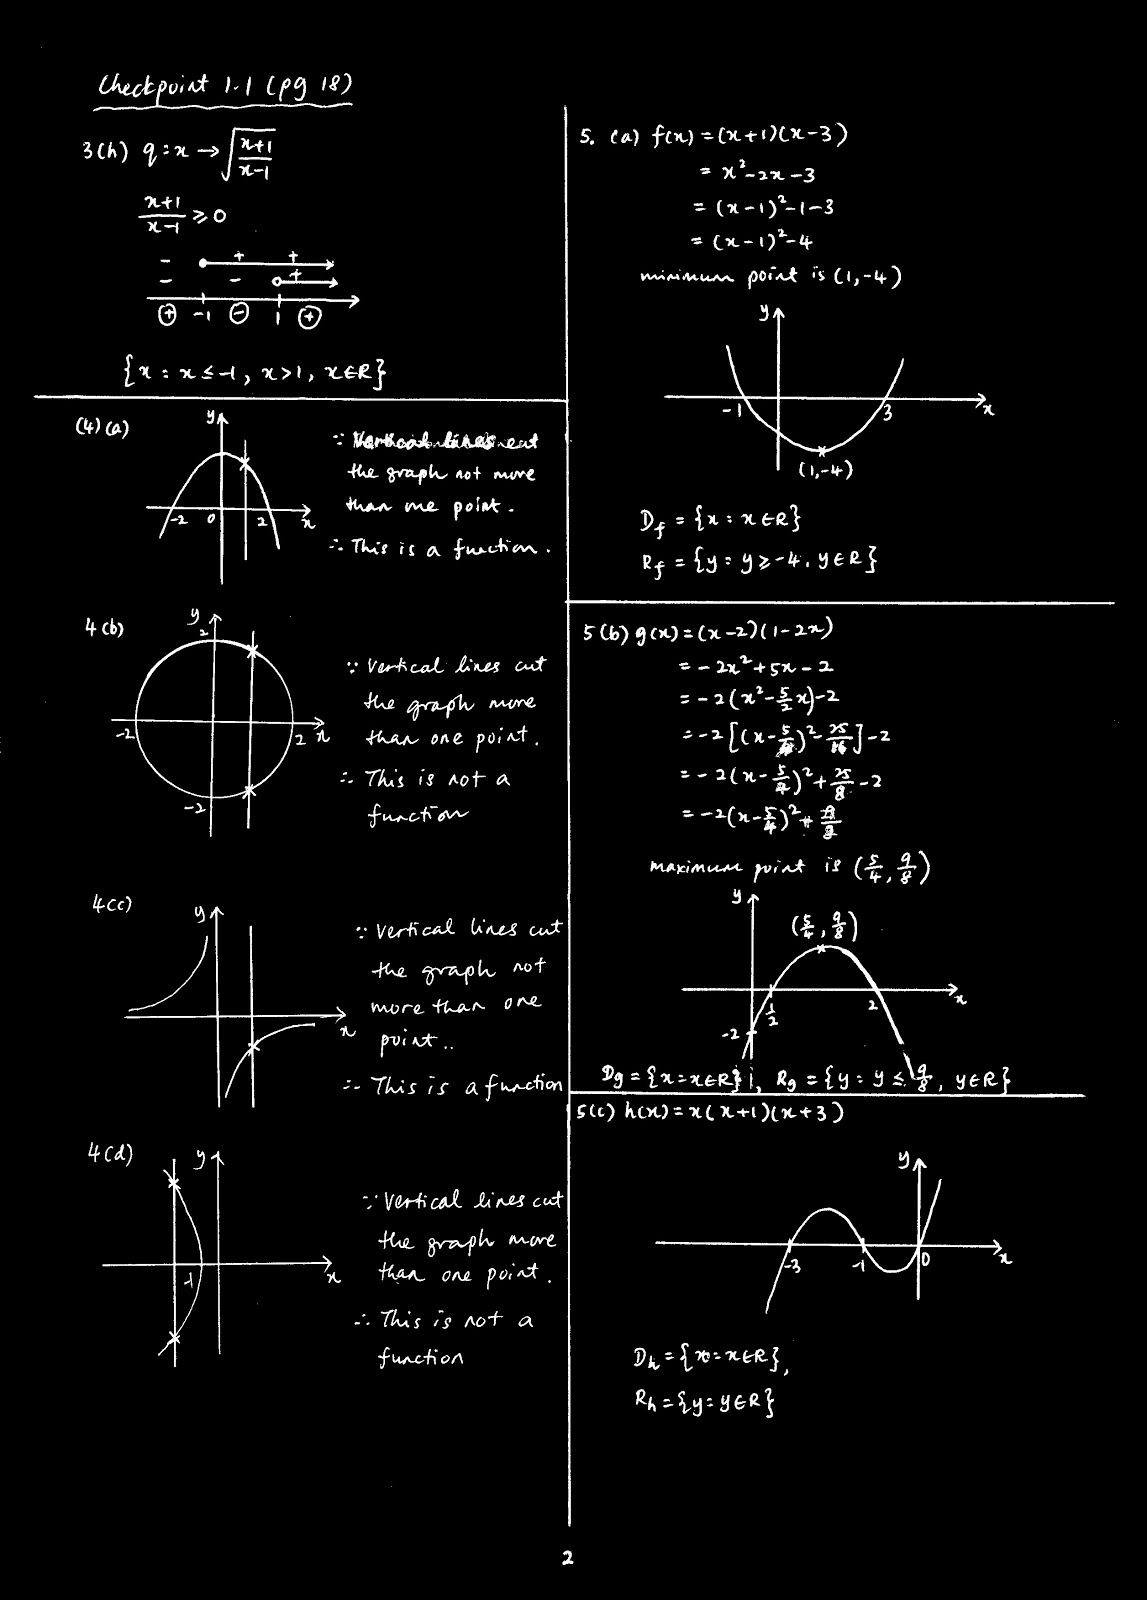 Checkpoint 1.1 (pg 18)
3(h) q : x → √((x+1)/(x-1))
(x+1)/(x-1) ≥ 0
- + +
- - +
⊕ -1 ⊖ 1 ⊕
{x : x ≤ -1, x > 1, x ∈ R}
(4)(a)
y
-2 0 2 x
∵ Vertical lines cut
the graph not more
than one point.
∴ This is a function.
4(b)
y
2
-2 2 x
-2
∵ Vertical lines cut
the graph more
than one point.
∴ This is not a
function
4(c)
y
x
∵ Vertical lines cut
the graph not
more than one
point..
∴ This is a function
4(d)
y
-1 x
∵ Vertical lines cut
the graph more
than one point.
∴ This is not a
function
5. (a) f(x) = (x+1)(x-3)
= x²-2x-3
= (x-1)²-1-3
= (x-1)²-4
minimum point is (1,-4)
y
-1 3 x
(1,-4)
D_f = {x : x ∈ R}
R_f = {y : y ≥ -4, y ∈ R}
5(b) g(x) = (x-2)(1-2x)
= -2x²+5x-2
= -2(x²-5/2x)-2
= -2[(x-5/4)²-25/16]-2
= -2(x-5/4)²+25/8-2
= -2(x-5/4)²+9/8
maximum point is (5/4, 9/8)
y
(5/4, 9/8)
1/2 2 x
-2
D_g = {x = x ∈ R}, R_g = {y : y ≤ 9/8, y ∈ R}
5(c) h(x) = x(x+1)(x+3)
y
-3 -1 0 x
D_h = {x = x ∈ R},
R_h = {y = y ∈ R}
2